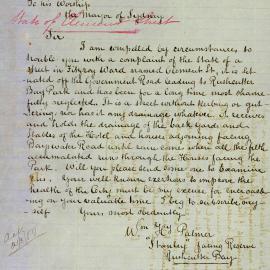 To his Worship
the Mayor of Sydney
State of Clement Street
Sir
I am compelled by circumstances to
trouble you with a complaint of the state of a
street in Fitzroy Ward named Clement St, it is sit-
uated off the Government Road leading to Rushcutter
Bay Park and has been for a long time most shame
fully neglected. It is a street without kerbing or gut-
tering, nor has it any drainage whatever. It receives
and holds the drainage of the back yards and
Stables of the Hotel and houses adjoining facing
Bayswater Road until rain comes when all the filth
accumulated runs through the Houses facing the
Park. Will you please send some one to Examine
this. Your well known exertions to improve the
health of the City must be my excuse for encroach
ing on your valuable time. I beg to subscribe my-
self Yours, most obediently
Wm Hy Palmer
"Stanley" facing Reserve
Rushcutter Bay